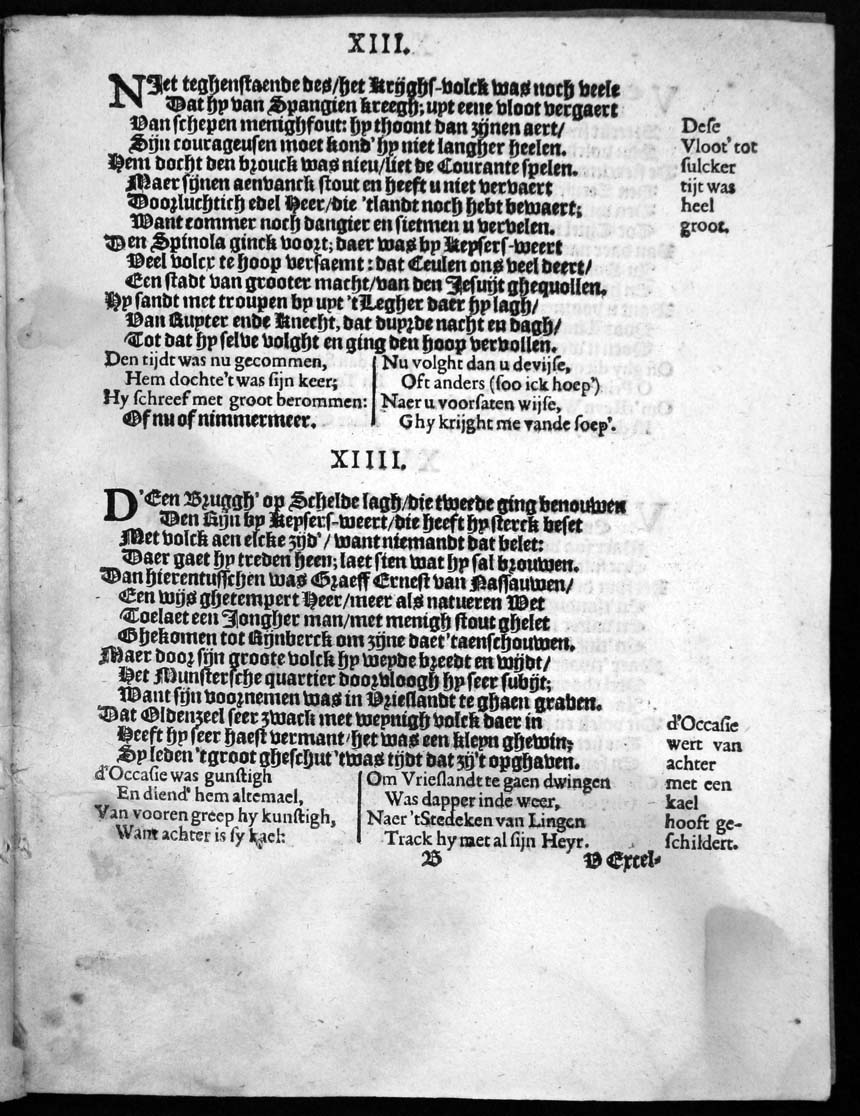 XIII.
NJet teghenstaende des/het Krijghs-volck was noch veele
Dat hy van Spangien kreegh; uyt eene vloot vergaert
Van schepen menighfout: hy thoont dan zijnen aert/
Sijn courageusen moet kond' hy niet langher heelen.
Hem docht den brouck was nieu/liet de Courante spelen.
Maer sijnen aenvanck stout en heeft u niet vervaert
Doorluchtich edel Heer/die 'tlandt noch hebt bewaert;
Want commer noch dangier en sietmen u vervelen.
Den Spinola ginck voort; daer was by Keysers-weert
Veel volcx te hoop versaemt: dat Ceulen ons veel deert/
Een stadt van grooter macht/van den Jesuijt ghequollen.
Hy sandt met troupen by uyt 'tLegher daer hy lagh/
Van Ruyter ende Knecht, dat duyrde nacht en dagh/
Tot dat hy selve volght en ging den hoop vervollen.
Dese
Vloot' tot
sulcker
tijt was
heel
groot.
Den tijdt was nu gecommen,
Hem dochte't was sijn keer;
Hy schreef met groot berommen:
Of nu of nimmermeer.
Nu volght dan u devijse,
Oft anders (soo ick hoep')
Naer u voorsaten wijse,
Ghy krijght me vande soep'.
XIIII.
D'Een Bruggh' op Schelde lagh/die tweede ging benouwen
Den Rijn by Keysers-weert/die heeft hy sterck beset
Met volck aen elcke zijd'/want niemandt dat belet:
Daer gaet hy treden heen; laet sien wat hy sal brouwen.
Dan hierentusschen was Graeff Ernest van Nassauwen/
Een wijs ghetempert Heer/meer als natueren Wet
Toelaet een Jongher man/met menigh stout ghelet
Ghekomen tot Rijnberck om zijne daet 'taenschouwen.
Maer door sijn groote volck hy weyde breedt en wijdt/
Het Munstersche quartier doorvloogh hy seer subijt;
Want sijn voornemen was in Vrieslandt te ghaen graven.
Dat Oldenzeel seer zwack met weynigh volck daer in
Heeft hy seer haest vermant/het was een kleyn ghewin;
Sy leden 'tgroot gheschut 'twas tijdt dat zy't opghaven.
d'Occasie
wert van
achter
met een
kael
hooft ge-
schildert.
d'Occasie was gunstigh
En diend' hem altemael,
Van vooren greep hy kunstigh,
Want achter is sy kael:
Om Vrieslandt te gaen dwingen
Was dapper inde weer,
Naer 'tStedeken van Lingen
Track hy met al sijn Heyr.
B
V Excel-